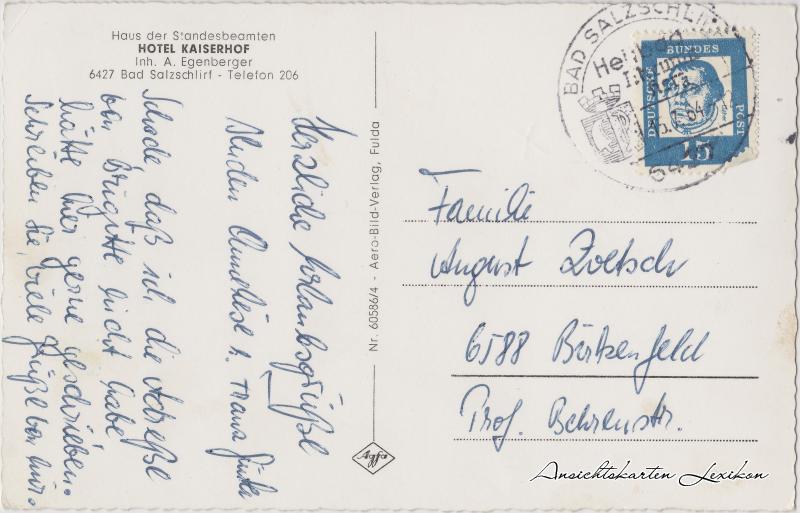 Haus der Standesbeamten
HOTEL KAISERHOF
Inh. A. Egenberger
6427 Bad Salzschlirf - Telefon 206
Herzliche Urlaubsgrüße
senden Anneliese u. Franz
Schade, daß ich die Adreße
von Brigitte nicht habe
hätte ihr gerne geschrieben.
Schreiben Sie, viele Grüße von mir.
Nr. 60586/4 - Aero-Bild-Verlag, Fulda
Agfa
BAD SALZSCHLIRF
Heilbad
6427
DEUTSCHE
BUNDES
POST
15
Familie
August Zoetsch
6588 Birkenfeld
Prof. Behrenstr.
Ansichtskarten Lexikon